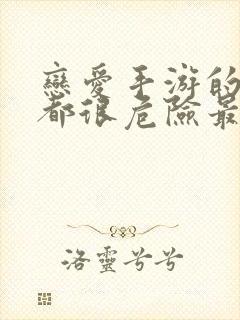 戀愛手游的
都很危險最
洛靈兮兮